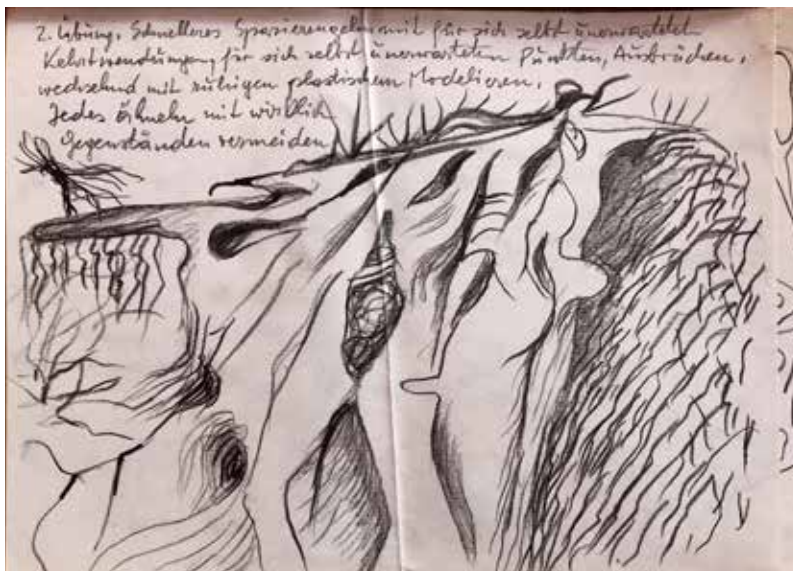 2. Übung. Schnelleres Spazierengehn mit für sich selbst unerwarteten
Kehrtwendungen, für sich selbst unerwarteten Punkten, Ausbrüchen,
wechselnd mit ruhigen plastischen Modelieren.
Jedes ähneln mit wirklich
Gegenständen vermeiden